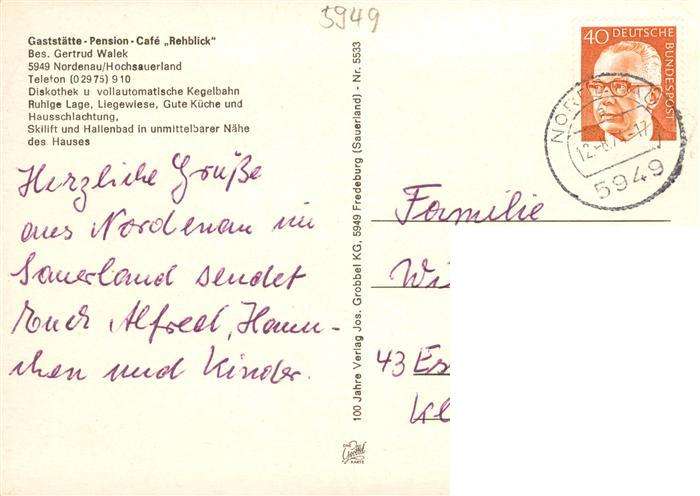 5949
Gaststätte - Pension - Café „Rehblick“
Bes. Gertrud Walek
5949 Nordenau/Hochsauerland
Telefon (0 29 75) 9 10
Diskothek u vollautomatische Kegelbahn
Ruhige Lage, Liegewiese, Gute Küche und
Hausschlachtung,
Skilift und Hallenbad in unmittelbarer Nähe
des Hauses
Herzliche Grüße
aus Nordenau im
Sauerland sendet
Euch Alfred, Hann-
chen und Kinder.
100 Jahre Verlag Jos. Grobbel KG, 5949 Fredeburg (Sauerland) - Nr. 5533
Grobbel
KARTE
40 DEUTSCHE
BUNDESPOST
NORDENAU
5949
Familie
Wi
43 Es